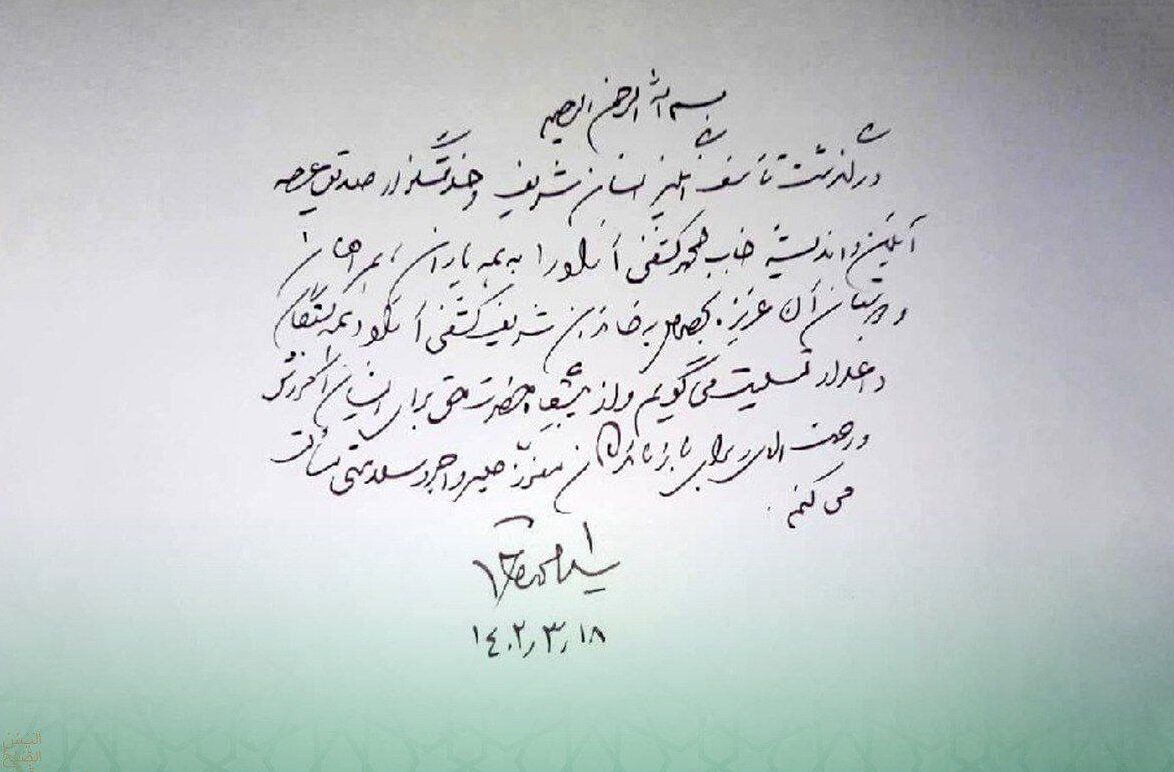 بسم الله الرحمن الرحیم
درگذشت تأسف انگیز انسان شریف و خدمتگزار صدیق عرصه
آیین و اندیشه جناب کشفی آنلور را به همه یاران، همراهان
و آن عزیز، بخصوص به خاندان شریف کشفی آنلور و همه بستگان
داغدار تسلیت می گویم و از پیشگاه حضرت حق برای ایشان آمرزش
و رحمت الهی و برای بازماندگان معزز صبر و اجر و سلامتی مسألت
می کنم.
۱۴۰۲٫۳٫۱۸